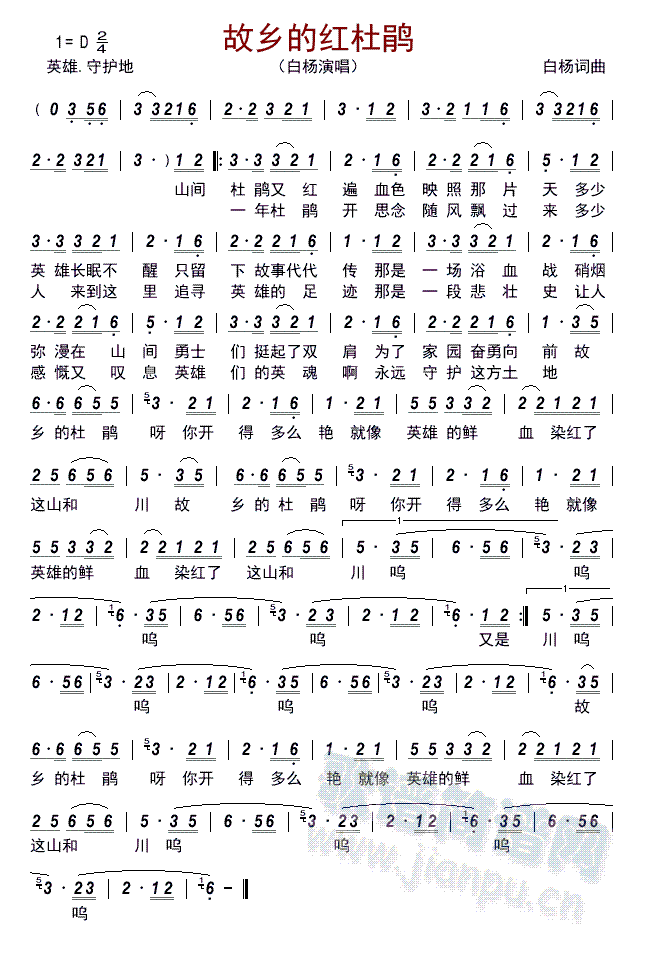 故乡的红杜鹃
1= D 2/4
英雄.守护地 （白杨演唱） 白杨词曲
( 0 3 5 6 | 3 3 2 1 6 | 2 · 2 3 2 1 | 3 · 1 2 | 6 · 6 1 2 1 | 3 3 2 1 6 |
2 · 2 3 2 1 | 3 · ) 1 2 |: 3 · 3 3 2 1 | 2 · 1 6 | 2 · 2 2 1 6 | 5 · 1 2 |
山间 杜 鹃又 红 遍 血色 映 照 那 片 天 多少
一 年杜 鹃 开 思念 随 风 飘 过 来 多少
3 · 3 3 2 1 | 2 · 1 6 | 2 · 2 2 1 6 | 5 · 1 2 | 3 · 3 3 2 1 | 2 · 1 6 |
英 雄长眠不 醒 只留 下 故事代代 传 那是 一 场 浴 血 战 硝烟
人 来到这 里 追寻 英 雄的 足 迹 那是 一 段 悲 壮 史 让人
2 · 2 2 1 6 | 5 · 1 2 | 3 · 3 3 2 1 | 2 · 1 6 | 2 · 2 2 1 6 | 1 · 3 5 |
弥 漫在 山 间 勇士 们 挺起了双 肩 为了 家 园 奋勇向 前 故
感 慨又 叹 息 英雄 们 的英 魂 啊 永远 守 护 这方土 地
6 · 6 6 5 5 | 5 3 · 2 1 | 2 · 1 6 | 1 · 2 1 | 5 5 3 3 2 | 2 2 1 2 1 |
乡 的杜 鹃 呀 你开 得 多么 艳 就像 英雄的鲜 血 染红了
2 5 6 5 6 | 5 · 3 5 | 6 · 6 6 5 5 | 5 3 · 2 1 | 2 · 1 6 | 1 · 2 1 |
这山和 川 故 乡 的 杜 鹃 呀 你开 得 多么 艳 就像
5 5 3 3 2 | 2 2 1 2 1 | 2 5 6 5 6 | 1 5 · 3 5 | 6 · 5 6 | 5 3 · 2 3 |
英雄的鲜 血 染红了 这山和 川 呜 呜
2 · 1 2 | 1 6 · 3 5 | 6 · 5 6 | 5 3 · 2 3 | 2 · 1 2 | 1 6 · 1 2 :| 1 5 · 3 5 |
呜 呜 又是 川 呜
6 · 5 6 | 5 3 · 2 3 | 2 · 1 2 | 1 6 · 3 5 | 6 · 5 6 | 5 3 · 2 3 | 2 · 1 2 | 1 6 · 3 5 |
呜 呜 呜 故
6 · 6 6 5 5 | 5 3 · 2 1 | 2 · 1 6 | 1 · 2 1 | 5 5 3 3 2 | 2 2 1 2 1 |
乡 的杜 鹃 呀 你开 得 多么 艳 就像 英雄的鲜 血 染红了
2 5 6 5 6 | 5 · 3 5 | 6 · 5 6 | 5 3 · 2 3 | 2 · 1 2 | 1 6 · 3 5 | 6 · 5 6 |
这山和 川 呜 呜 呜
5 3 · 2 3 | 2 · 1 2 | 1 6 - ||
呜
www.jianpu.cn